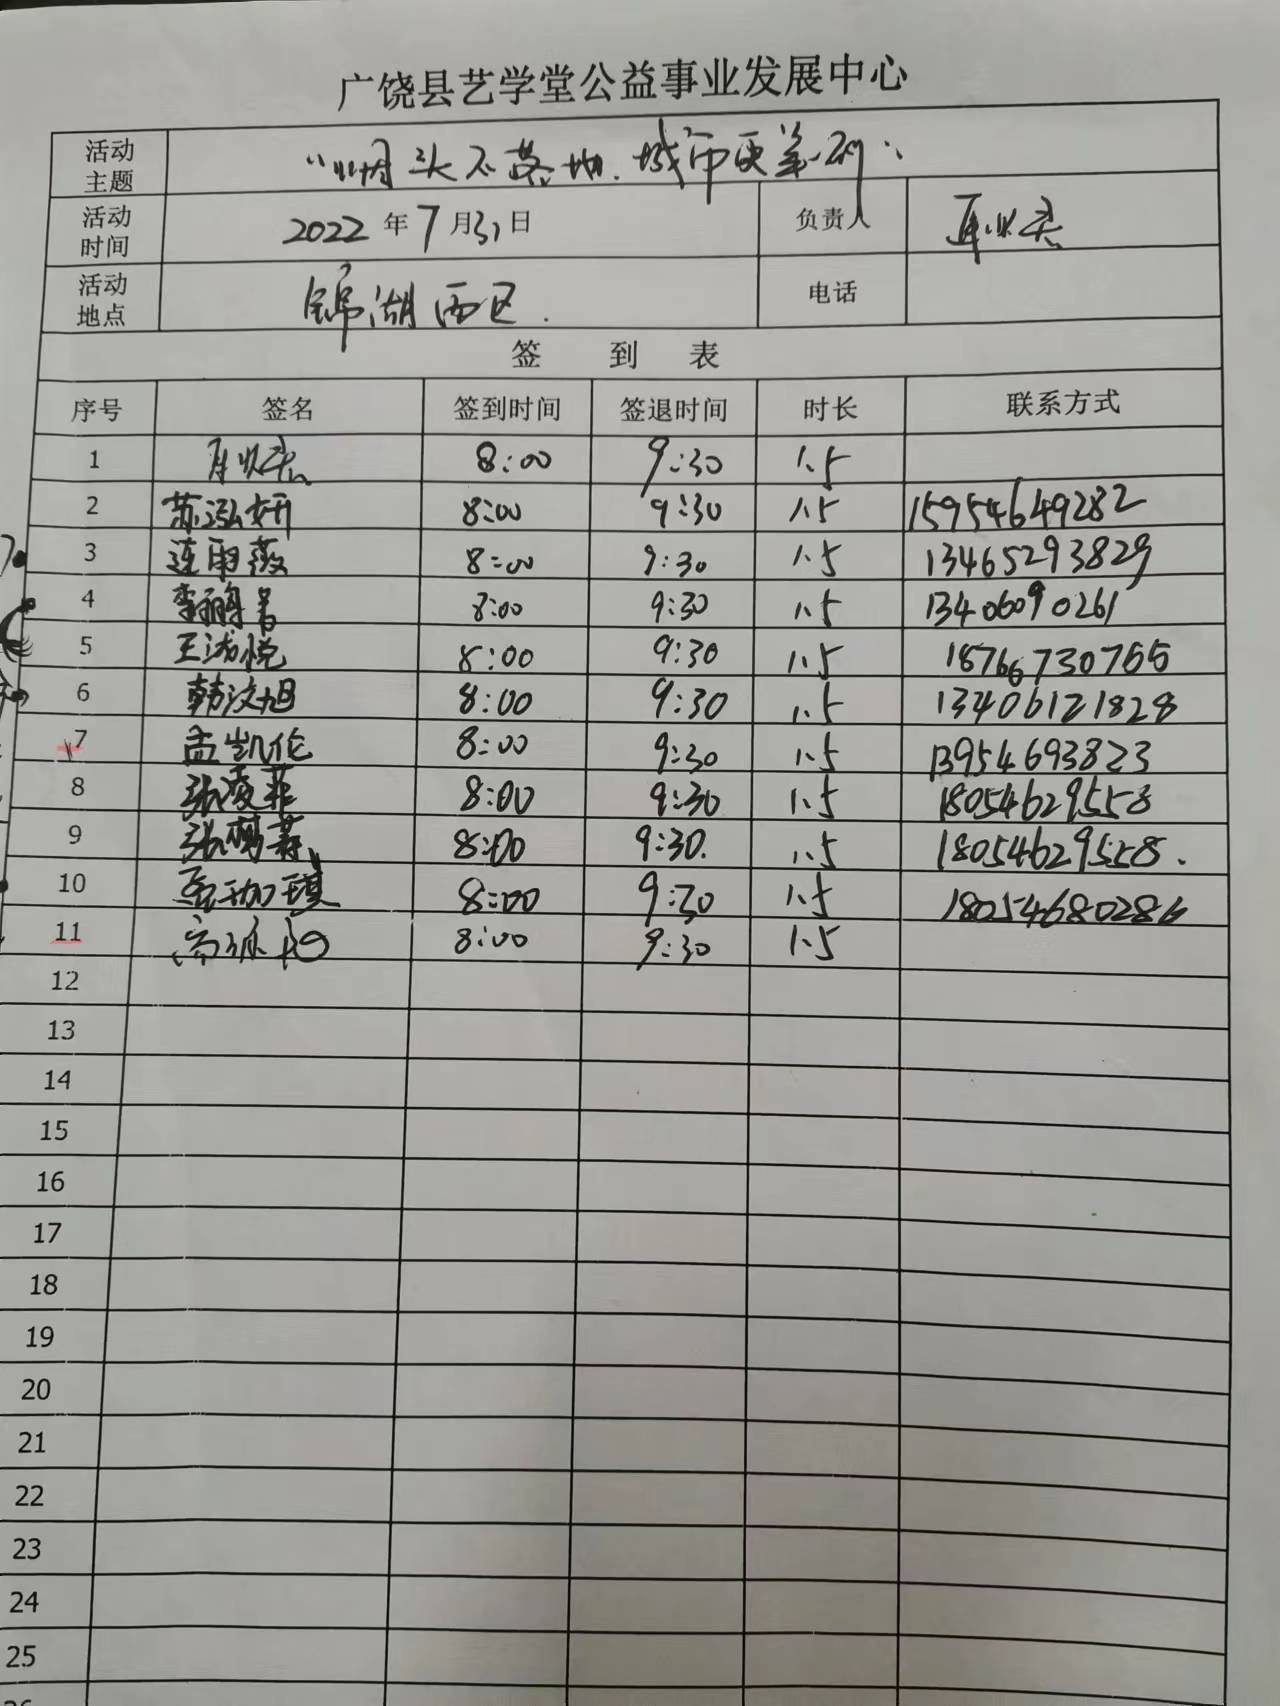 广饶县艺学堂公益事业发展中心
活动主题 "烟头不落地.城市更美丽"
活动时间 2022年7月31日 负责人
活动地点 锦湖西区. 电话
签 到 表
序号 签名 签到时间 签退时间 时长 联系方式
1 8:00 9:30 1.5
2 苏泓妍 8:00 9:30 1.5 15954649282
3 莲雨薇 8:00 9:30 1.5 13465293829
4 8:00 9:30 1.5 13406090261
5 王浩悦 8:00 9:30 1.5 18766730755
6 韩汶旭 8:00 9:30 1.5 13406121828
7 孟凯伦 8:00 9:30 1.5 13954693823
8 张凌菲 8:00 9:30 1.5 18054629558
9 8:00 9:30. 1.5 18054629558.
10 8:00 9:30 1.5 18054680286
11 8:00 9:30 1.5
12
13
14
15
16
17
18
19
20
21
22
23
24
25
26